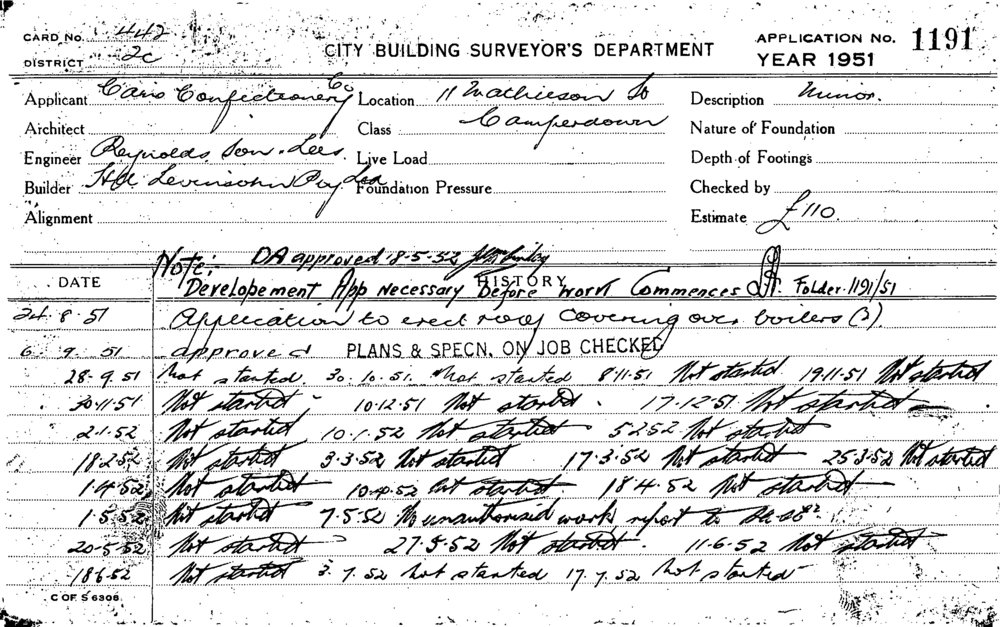 CARD NO. 442
DISTRICT 2C
CITY BUILDING SURVEYOR'S DEPARTMENT
APPLICATION NO. 1191
YEAR 1951
Applicant Cavis Confectionery Co Location 11 Mathieson St Description Minor.
Architect Class Camperdown Nature of Foundation
Engineer Reynolds, Son Lees. Live Load Depth of Footings
Builder H A Levinsohn Pty Ltd Foundation Pressure Checked by
Alignment Estimate £110.
Note: DA approved 8-5-52
DATE HISTORY
Developement App necessary before work Commences Folder 1191/51
24.8.51 Application to erect roof covering over boilers (3).
6.9.51 approved PLANS & SPECN. ON JOB CHECKED
28-9.51 Not started 30.10.51. Not started 8.11.51 Not started 19.11.51 Not started
30.11.51 Not started 10.12.51 Not started. 17.12.51 Not started
2.1.52 Not started 10.1.52 Not started 5.2.52 Not started
18.2.52 Not started 3.3.52 Not started 17.3.52 Not started 25.3.52 Not started
1.4.52 Not started 10.4.52 Not started. 18.4.52 Not started
1.5.52 Not started 7.5.52 No unauthorised work report to
20-5-52 Not started 27.5.52 Not started. 11.6.52 Not started
18.6.52 Not started 3.7.52 Not started 17.7.52 Not started
C OF S 6306